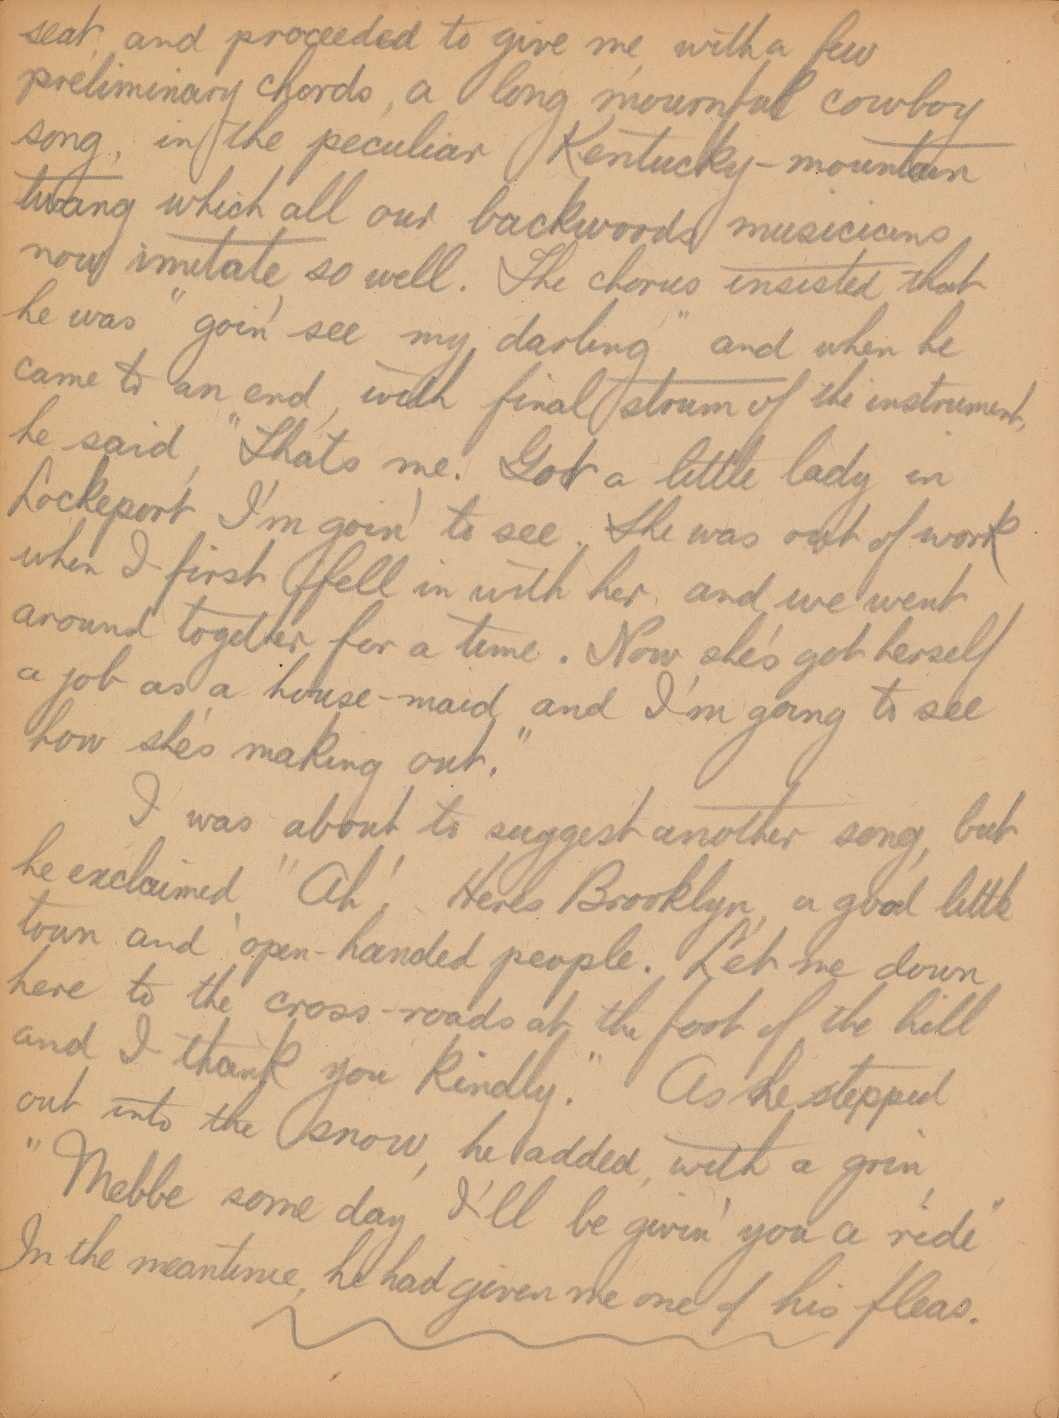 seat, and proceeded to give me, with a few
preliminary chords, a long mournful cowboy
song, in the peculiar Kentucky-mountain
twang which all our backwoods musicians
now imitate so well. The chorus insisted that
he was "goin' see my darling" and when he
came to an end, with final strum of the instrument,
he said, "Thats me. Got a little lady in
Lockeport I'm goin' to see. She was out of work
when I first fell in with her, and we went
around together for a time. Now she's got herself
a job as a house-maid, and I'm going to see
how she's making out."
I was about to suggest another song, but
he exclaimed "Ah! Here's Brooklyn, a good little
town and open-handed people. Let me down
here to the cross-roads at the foot of the hill
and I thank you kindly." As he stepped
out into the snow, he added, with a grin,
"Mebbe some day I'll be givin' you a ride"
In the meantime, he had given me one of his fleas.